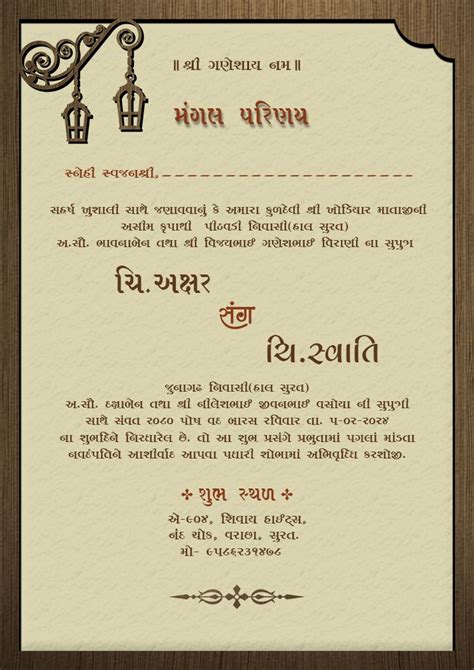 ॥ શ્રી ગણેશાય નમ ॥
મંગલ પરિણય
સ્નેહી સ્વજનશ્રી,
સહર્ષ ખુશાલી સાથે જણાવવાનું કે અમારા કુળદેવી શ્રી ખોડિયાર માતાજીની
અસીમ કૃપાથી પીઠવડી નિવાસી(હાલ સુરત)
અ.સૌ. ભાવનાબેન તથા શ્રી વિજયભાઈ ગણેશભાઈ વિરાણી ના સુપુત્ર
ચિ.અક્ષર
સંગ
ચિ.સ્વાતિ
જુનાગઢ નિવાસી(હાલ સુરત)
અ.સૌ. દક્ષાબેન તથા શ્રી નીલેશભાઈ જીવનભાઈ વસોયા ની સુપુત્રી
સાથે સંવત ૨૦૮૦ પોષ વદ બારસ રવિવાર તા. ૫-૦૨-૨૦૨૪
ના શુભદિને નિરધારેલ છે. તો આ શુભ પ્રસંગે પ્રભુતામાં પગલાં માંડતા
નવદંપતિને આશીર્વાદ આપવા પધારી શોભામાં અભિવૃધ્ધિ કરશોજી.
શુભ સ્થળ
એ-૯૦૪, શિવાય હાઈટ્સ,
નંદ ચોક, વરાછા, સુરત.
મો- ૯૫૮૬૨૩૧૪૭૮